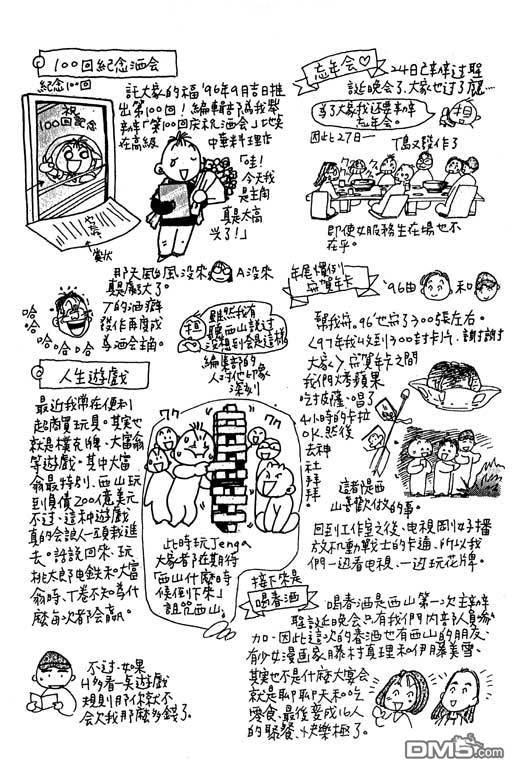 100回紀念酒会
紀念100回
祝
100回記念
賞状
託大家的福'96年9月吉日推
出第100回!編輯部為我舉
辦「第100回庆祝酒会」地点
在高級
中華料理店
「哇!
今天我
是主角
真是太高
兴了!」
那天颱風沒來
A沒來
真是敗了。
T的酒癖
發作再度成
為酒会主角。
哈哈
哈哈哈哈
雖然我有
聽西山説过
沒想到会是這樣
担
編集部的
人对他印象
深刻
人生遊戲
最近我常在便利
超商買玩具。其实也
就是樸克牌、大富翁
等遊戲。其中大富
翁最特別、西山玩
到負債200億美元
不过、這种遊戲
真的会讓人互損進
去。話説回來、玩
桃太郎电鉄和大富
翁時、T卷不知為什
麼每次都会贏。
此時玩Jenga
大家都在期待
「西山什麼時
候倒下來」
詛咒西山。
不过、如果
H的看一桌遊戲
規則那你就不
会欠我那麼多錢了。
忘年会♡
24日已幸辦过聖
誕晚会了、大家也过了癮…
為了大家我还要幸辦
忘年会。
担
因此27日一
T島又發作了
即使女服務生在場也不
在乎。
年尾慣例
寫賀年卡
'96由
和
幫我寫。'96也寫了300張左右。
〈97年我收到300封卡片、謝謝
大家〉寫賀年卡之間
我們烤蘋果
吃披薩、唱了
4小時的卡拉
OK、然後
去神
社拜拜。
這者是西
山喜歡做的事。
回到工作室之後、电視剛好播
放不動戰士的卡通、所以我
們一边看电視、一边玩花牌。
接下來是
喝春酒
喝春酒是西山第一次主辦
聖誕晚会只有我們内部人員参
加、因此這次的春酒也有西山的朋友、
有少女漫画家藤村真理和伊藤美雪、
其实也不是什麼大宴会
就是聊聊天和吃
零食、最後变成16人
的聚餐、快樂極了。
DM5.com